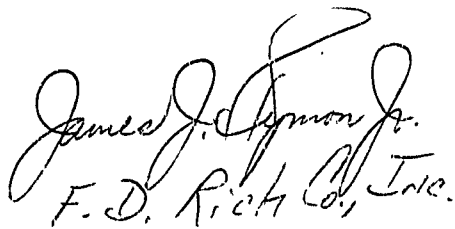 James J. Rymon Jr.
F. D. Rich Co., Inc.